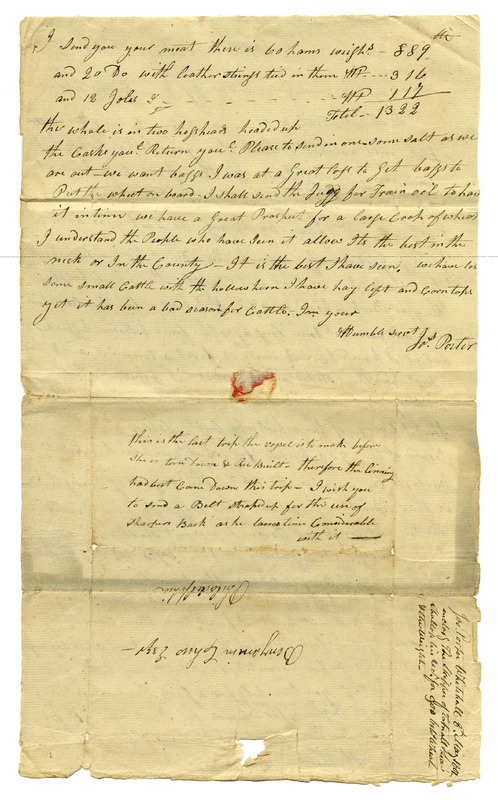 I Send you your meat there is 60 hams weighs. - 889
and 20 Do with leather strings tied in them Wt - - 316
and 12 Joles Do - - - - Wt 117
Total - 1322
the whole is in two hogsheads headed up
the Casks you'l Return you'l Please to send in one some salt as we
are out - we want baggs I was at a Great loss to Get baggs to
Put the wheat on board - I shall send the Jugg for Train oil to have
it in time we have a Great Prospect for a large Crop of wheat
I understand the People who have Seen it allow Its the best in the
neck or In the County - It is the best I have seen, we have los
some small Cattle with the hollow horn I have hay left and Corn tops
yet it has been a bad season for Cattle. I'm your
Humble servt
Jos. Porter
this is the last trip the vessel is to make before
She is torn down & Re Built - therefore the
had best Come Down this trip - I wish you
to send a Belt strap up for the use of
Sharpers Back as he Considerable
with it
Philadelphia
Benjamin Chew Esqr -
Jos. Porter Whitehall 8th May 1802